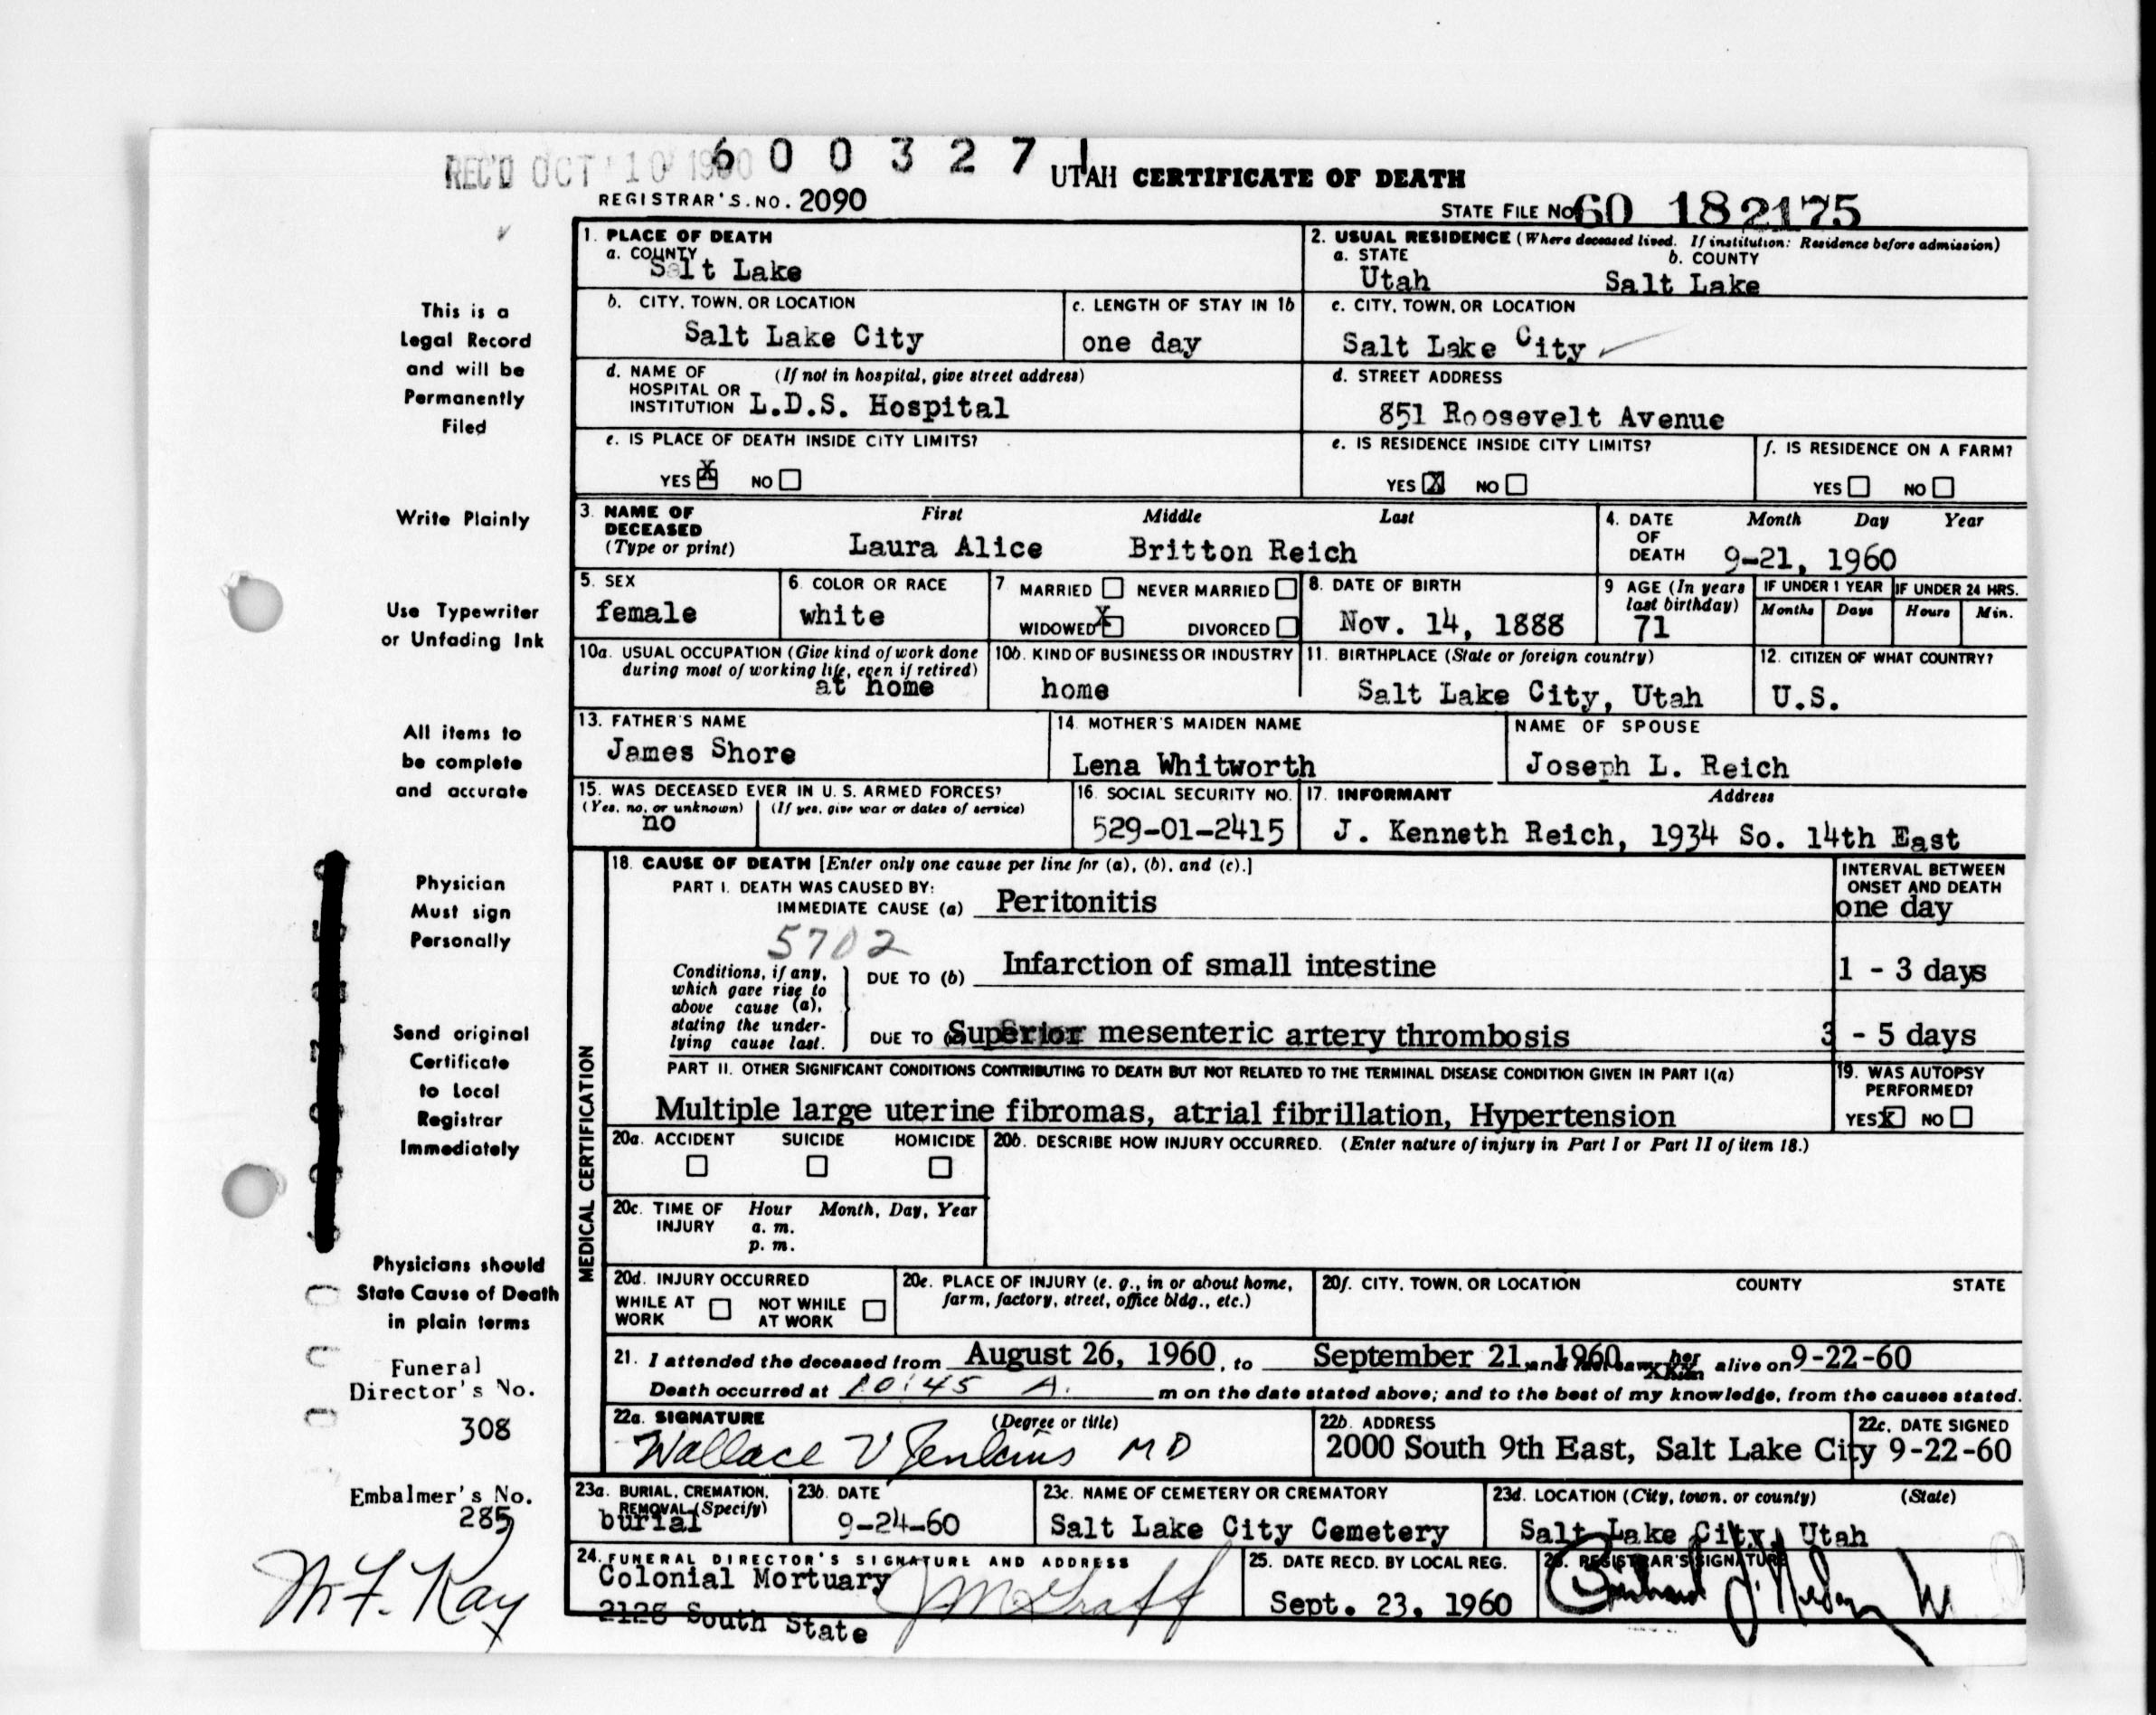 REC'D OCT 10 1960 6003271
UTAH CERTIFICATE OF DEATH
REGISTRAR'S. NO. 2090
STATE FILE NO 60 18 2175
1. PLACE OF DEATH
a. COUNTY
Salt Lake
2. USUAL RESIDENCE (Where deceased lived. If institution: Residence before admission)
a. STATE b. COUNTY
Utah Salt Lake
b. CITY, TOWN, OR LOCATION
Salt Lake City
c. LENGTH OF STAY IN 1b
one day
c. CITY, TOWN, OR LOCATION
Salt Lake City
d. NAME OF HOSPITAL OR INSTITUTION (If not in hospital, give street address)
L.D.S. Hospital
d. STREET ADDRESS
851 Roosevelt Avenue
e. IS PLACE OF DEATH INSIDE CITY LIMITS?
YES X NO
e. IS RESIDENCE INSIDE CITY LIMITS?
YES X NO
f. IS RESIDENCE ON A FARM?
YES NO
3. NAME OF DECEASED (Type or print)
First Middle Last
Laura Alice Britton Reich
4. DATE OF DEATH Month Day Year
9-21, 1960
5. SEX
female
6. COLOR OR RACE
white
7 MARRIED NEVER MARRIED
WIDOWED X DIVORCED
8. DATE OF BIRTH
Nov. 14, 1888
9 AGE (In years last birthday)
71
IF UNDER 1 YEAR IF UNDER 24 HRS.
Months Days Hours Min.
10a. USUAL OCCUPATION (Give kind of work done during most of working life, even if retired)
at home
10b. KIND OF BUSINESS OR INDUSTRY
home
11. BIRTHPLACE (State or foreign country)
Salt Lake City, Utah
12. CITIZEN OF WHAT COUNTRY?
U.S.
13. FATHER'S NAME
James Shore
14. MOTHER'S MAIDEN NAME
Lena Whitworth
NAME OF SPOUSE
Joseph L. Reich
15. WAS DECEASED EVER IN U. S. ARMED FORCES?
(Yes, no, or unknown) (If yes, give war or dates of service)
no
16. SOCIAL SECURITY NO.
529-01-2415
17. INFORMANT Address
J. Kenneth Reich, 1934 So. 14th East
MEDICAL CERTIFICATION
18. CAUSE OF DEATH [Enter only one cause per line for (a), (b), and (c).]
PART I. DEATH WAS CAUSED BY:
IMMEDIATE CAUSE (a) Peritonitis
INTERVAL BETWEEN ONSET AND DEATH
one day
5702
Conditions, if any, which gave rise to above cause (a), stating the underlying cause last.
DUE TO (b) Infarction of small intestine 1 - 3 days
DUE TO Superior mesenteric artery thrombosis 3 - 5 days
PART II. OTHER SIGNIFICANT CONDITIONS CONTRIBUTING TO DEATH BUT NOT RELATED TO THE TERMINAL DISEASE CONDITION GIVEN IN PART I(a)
Multiple large uterine fibromas, atrial fibrillation, Hypertension
19. WAS AUTOPSY PERFORMED?
YES X NO
20a. ACCIDENT SUICIDE HOMICIDE
20b. DESCRIBE HOW INJURY OCCURRED. (Enter nature of injury in Part I or Part II of item 18.)
20c. TIME OF INJURY Hour Month, Day, Year
a. m.
p. m.
20d. INJURY OCCURRED
WHILE AT WORK NOT WHILE AT WORK
20e. PLACE OF INJURY (e. g., in or about home, farm, factory, street, office bldg., etc.)
20f. CITY, TOWN, OR LOCATION COUNTY STATE
21. I attended the deceased from August 26, 1960, to September 21, 1960 and last saw her alive on 9-22-60
Death occurred at 10:45 A. m on the date stated above; and to the best of my knowledge, from the causes stated.
22a. SIGNATURE (Degree or title)
Wallace V Jenkins MD
22b. ADDRESS
2000 South 9th East, Salt Lake City
22c. DATE SIGNED
9-22-60
23a. BURIAL, CREMATION, REMOVAL (Specify)
burial
23b. DATE
9-24-60
23c. NAME OF CEMETERY OR CREMATORY
Salt Lake City Cemetery
23d. LOCATION (City, town, or county) (State)
Salt Lake City, Utah
24. FUNERAL DIRECTOR'S SIGNATURE AND ADDRESS
Colonial Mortuary
2128 South State
25. DATE RECD. BY LOCAL REG.
Sept. 23, 1960
26. REGISTRAR'S SIGNATURE
This is a
Legal Record
and will be
Permanently
Filed
Write Plainly
Use Typewriter
or Unfading Ink
All items to
be complete
and accurate
Physician
Must sign
Personally
Send original
Certificate
to Local
Registrar
Immediately
Physicians should
State Cause of Death
in plain terms
Funeral
Director's No.
308
Embalmer's No.
285
M. F. Kay